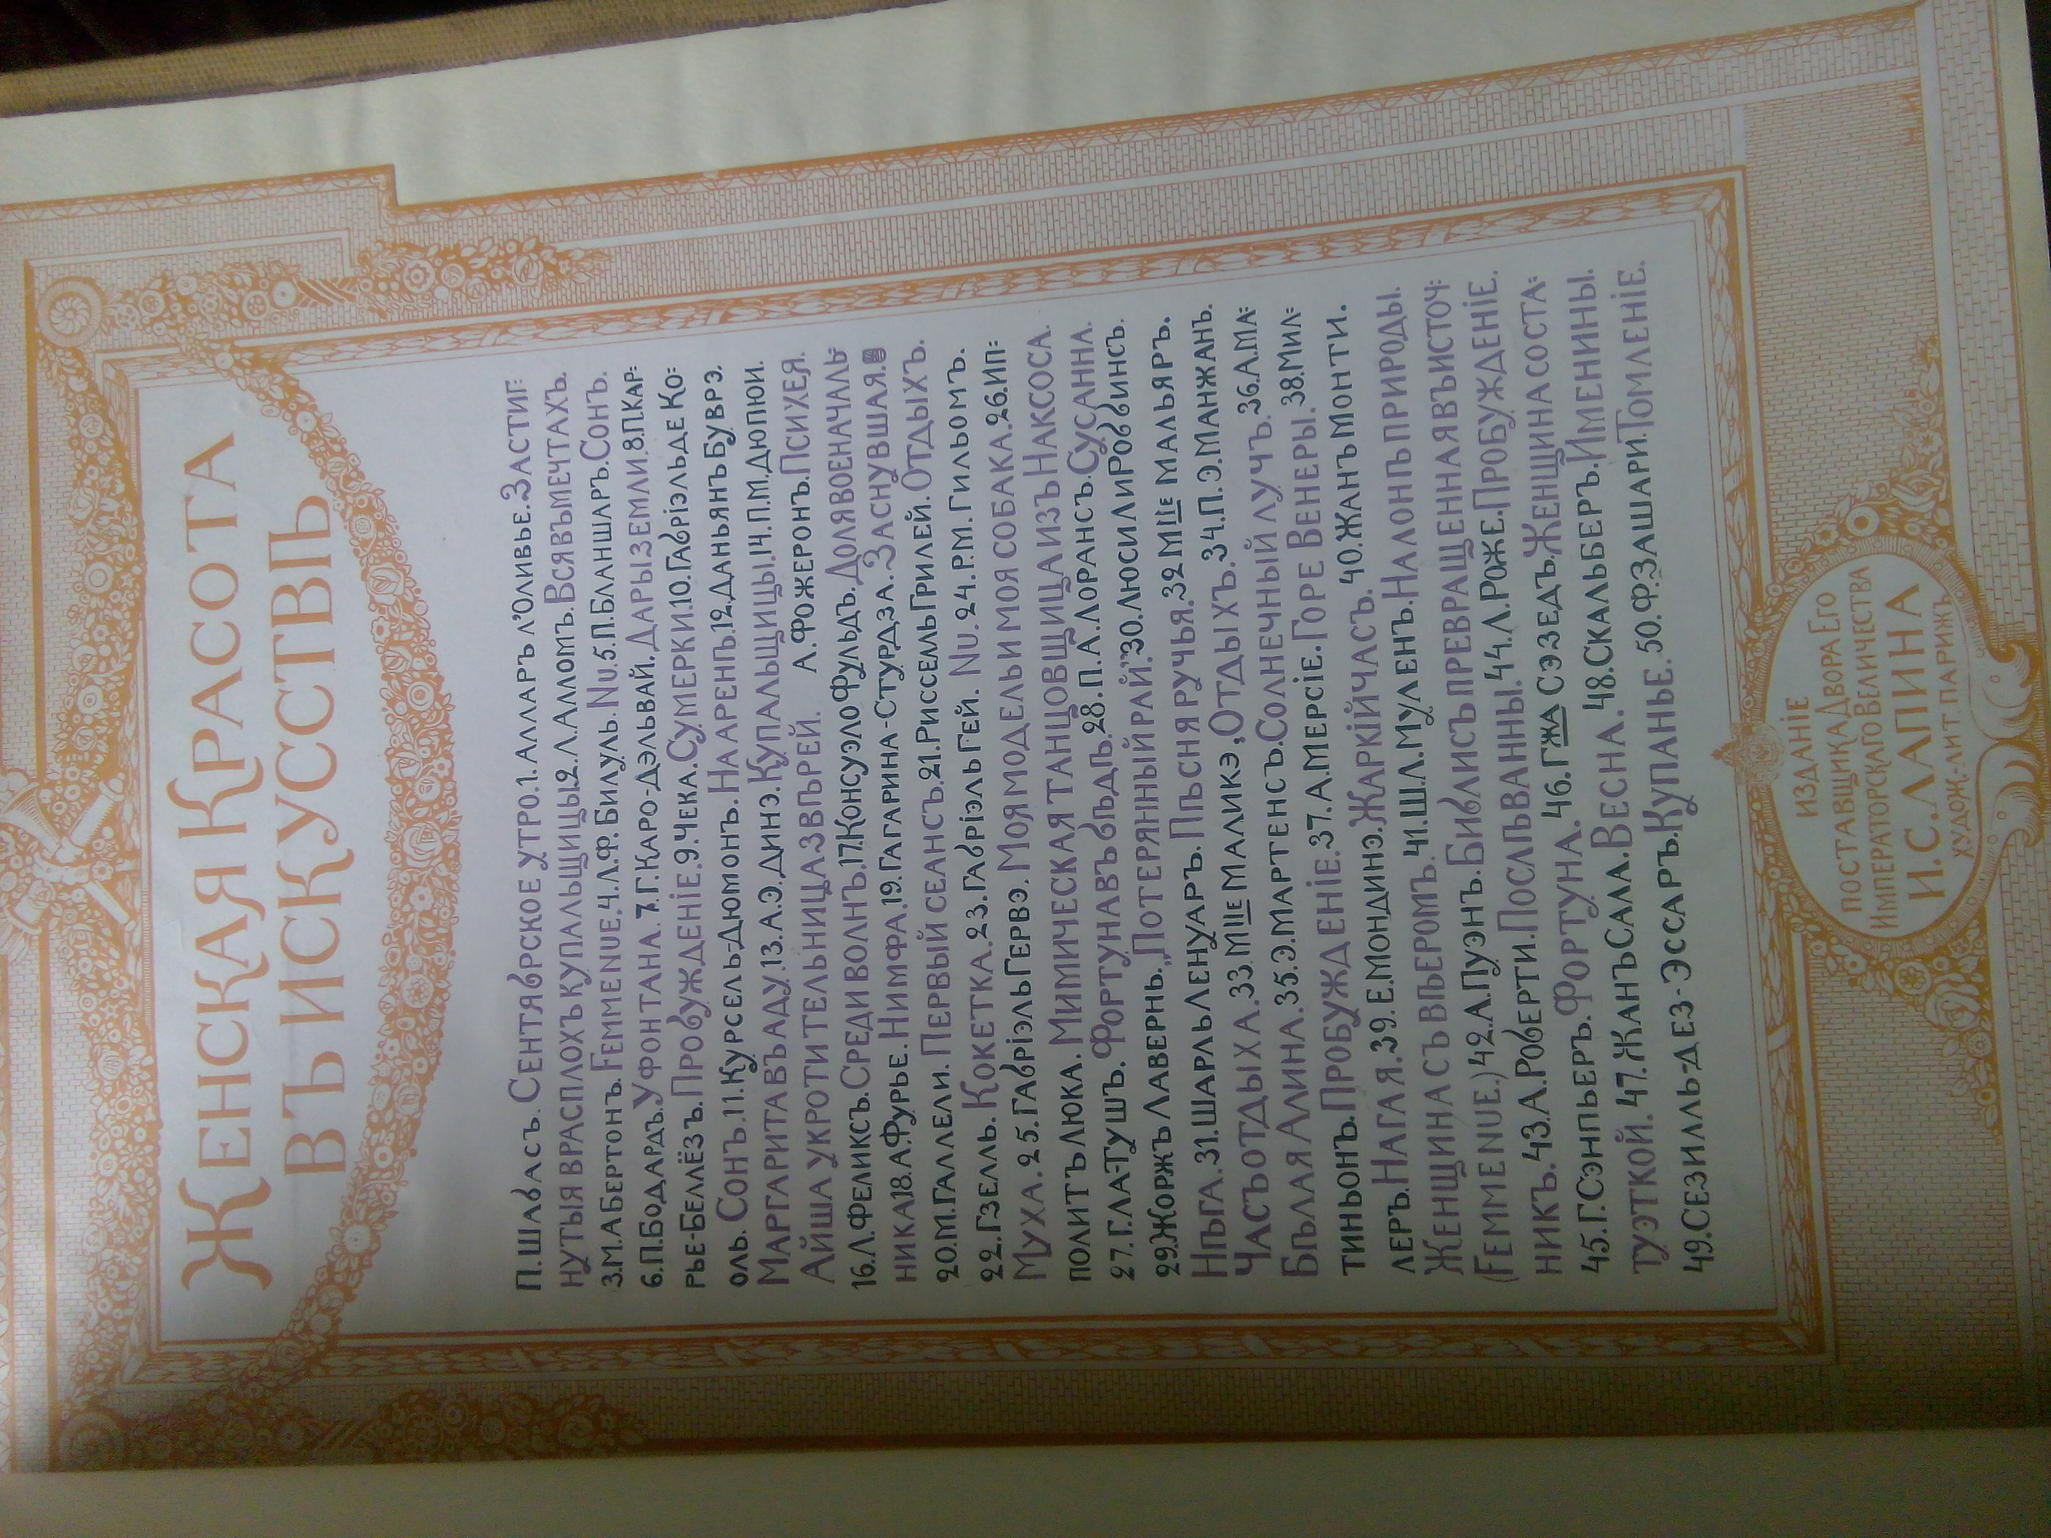 Женская Красота
въ Искусствѣ
П. Шабасъ. Сентябрское утро. 1. Алларъ л'Оливье. Застиг=
нутыя врасплохъ купальщицы 2. Л. Аломъ. Вся въ мечтахъ.
3. М. Абертонъ. Femme nue. 4. Л. Ф. Билуль. Nu. 5. П. Бланшаръ. Сонъ.
6. П. Бодардъ. У фонтана. 7. Г. Каро-Дэльвай. Дары земли. 8. П. Кар=
рье-Беллёзъ. Пробужденіе. 9. Чека. Сумерки. 10. Габріэль де Ко=
оль. Сонъ. 11. Курсель-Дюмонъ. На аренѣ. 12. Даньянъ Буврэ.
Маргарита въ аду. 13. А. Э. Динэ. Купальщицы. 14. П. М. Дюпюи.
Айша укротительница звѣрей. А. Фожеронъ. Психея.
16. Л. Феликсъ. Среди волнъ. 17. Консуэло Фульдъ. Доля военачаль=
ника 18. А. Фурье. Нимфа. 19. Гагарина-Стурдза. Заснувшая.
20. М. Галлели. Первый сеансъ. 21. Риссель Грилей. Отдыхъ.
22. Гзелль. Кокетка. 23. Габріэль Гей. Nu. 24. Р. М. Гильомъ.
Муха. 25. Габріэль Гервэ. Моя модель и моя собака. 26. Ип=
политъ Люка. Мимическая танцовщица изъ Наксоса.
27. Г. Ла-Тушъ. Фортуна въ бѣдѣ. 28. П. А. Лорансъ. Сусанна.
29. Жоржъ Лавернь. „Потерянный рай." 30. Люсили Роббинсъ.
Нѣга. 31. Шарль Ленуаръ. Пѣсня ручья. 32 Мlle Мальяръ.
Часъ отдыха. 33. Мlle Маликэ, Отдыхъ. 34. П. Э. Манжанъ.
Бѣлая Алина. 35. Э. Мартенсъ. Солнечный лучъ. 36. А. Ма=
тиньонъ. Пробужденіе. 37. А. Мерсіе. Горе Венеры. 38. Мил=
леръ. Нагая. 39. Е. Мондинэ. Жаркій часъ. 40. Жанъ Монти.
Женщина съ вѣеромъ. 41. Ш. Л. Муленъ. На лонѣ природы.
(Femme nue.) 42. А. Пуэнъ. Библисъ превращенная въ источ=
никъ. 43. А. Роберти. Послѣ ванны. 44. Л. Роже. Пробужденіе.
45. Г. Сэнпьеръ. Фортуна. 46. Гжа Сэзедъ. Женщина со ста=
туэткой. 47. Жанъ Сала. Весна. 48. Скальберъ. Именины.
49. Сезилль-дез-Эссаръ. Купанье. 50. Ф. Зашари. Томленіе.
Изданіе
поставщика Двора Его
Императорскаго Величества
И. С. Лапина
худож.-лит. Парижъ